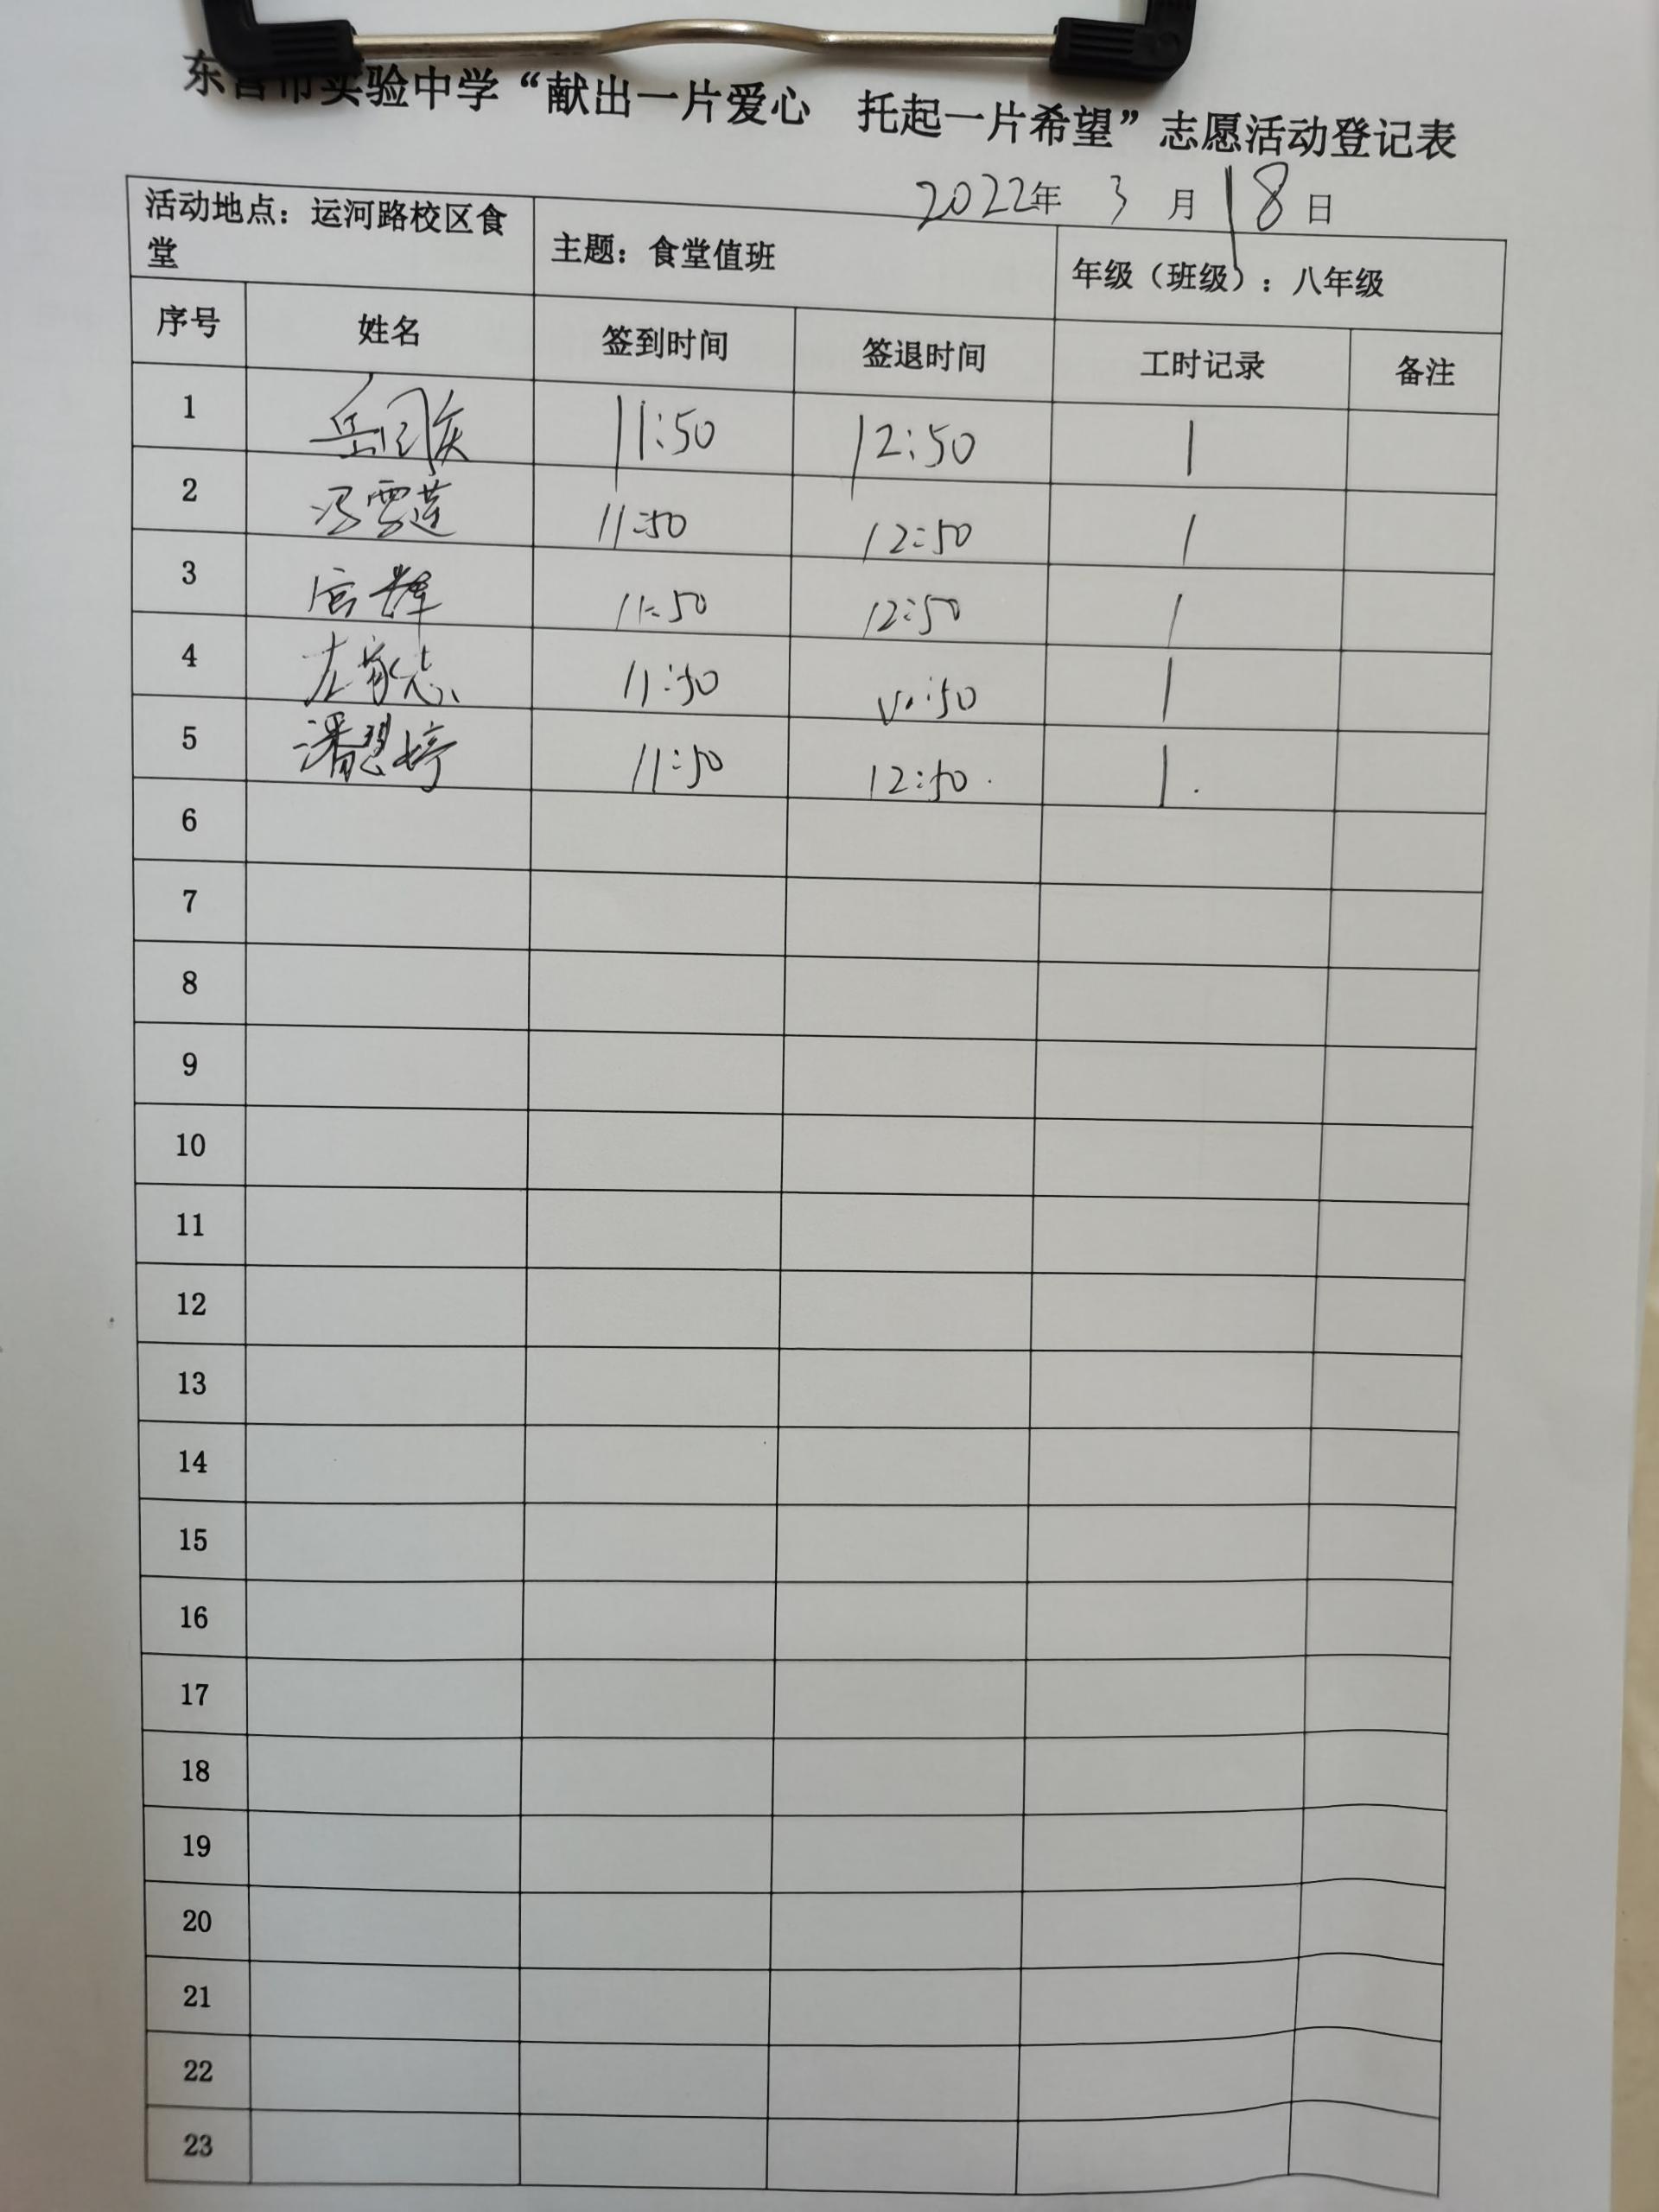 东营市实验中学“献出一片爱心 托起一片希望”志愿活动登记表
2022年 3 月 18 日
活动地点：运河路校区食堂 主题：食堂值班 年级（班级）：八年级
序号 姓名 签到时间 签退时间 工时记录 备注
1 11:50 12:50 1
2 冯雪莲 11:50 12:50 1
3 宫辉 11:50 12:50 1
4 左家志 11:50 12:50 1
5 潘慧婷 11:50 12:50 1
6
7
8
9
10
11
12
13
14
15
16
17
18
19
20
21
22
23